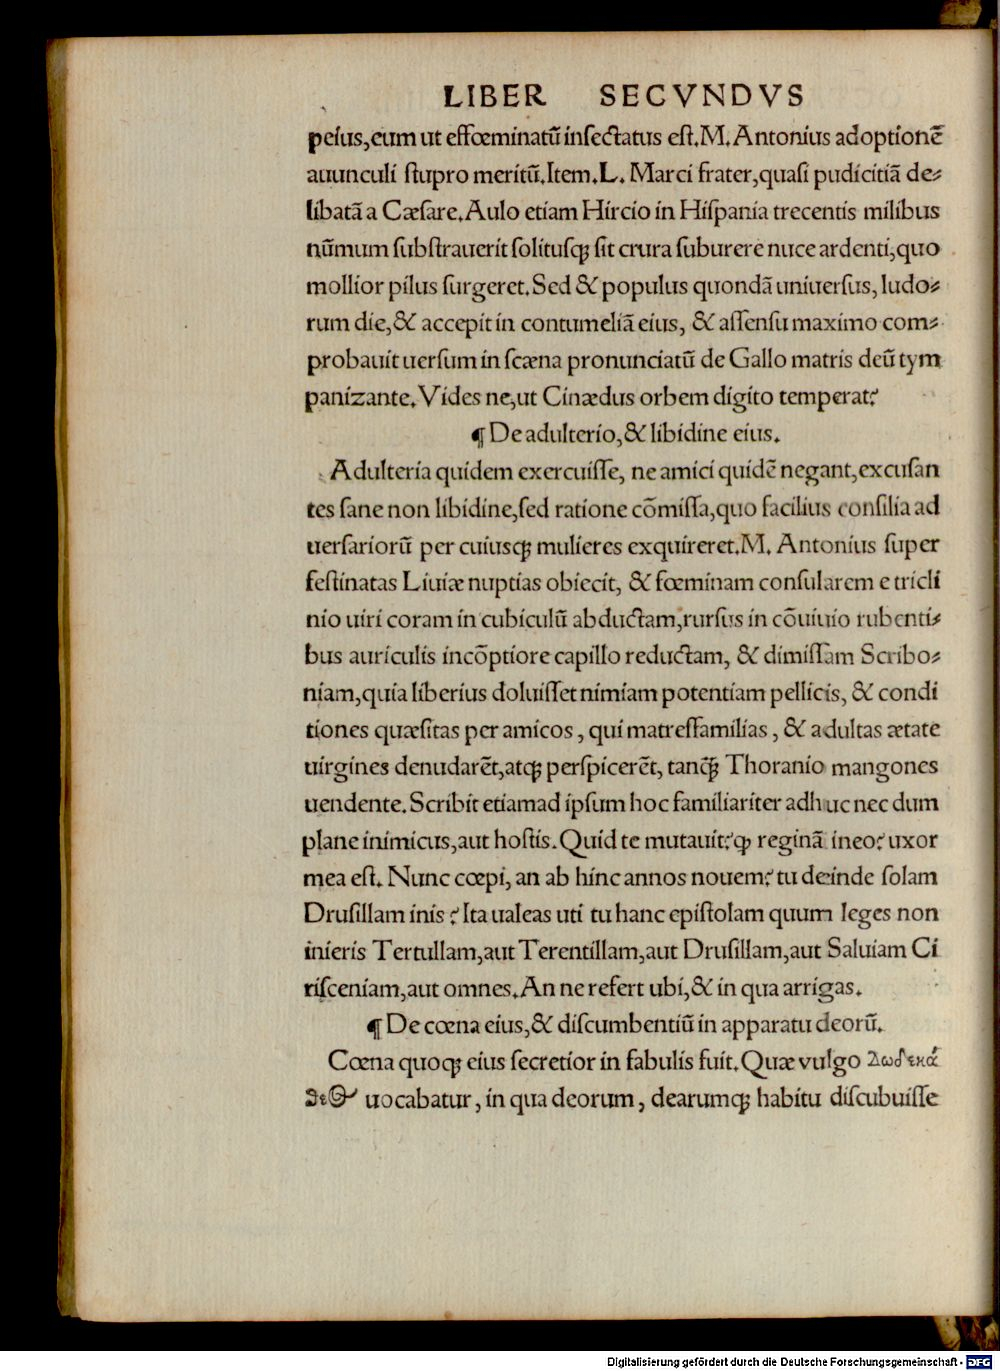 LIBER SECVNDVS
peius,eum ut effœminatū insectatus est.M.Antonius adoptionē
auunculi stupro meritū.Item.L. Marci frater,quasi pudicitiā de⸗
libatā a Cæsare.Aulo etiam Hircio in Hispania trecentis milibus
nūmum substrauerit solitusq; sit crura suburere nuce ardenti,quo
mollior pilus surgeret.Sed & populus quondā uniuersus, ludo⸗
rum die,& accepit in contumeliā eius, & assensu maximo com⸗
probauit uersum in scæna pronunciatū de Gallo matris deū tym
panizante.Vides ne,ut Cinædus orbem digito temperat?
¶ De adulterio,& libidine eius.
Adulteria quidem exercuisse, ne amici quidē negant,excusan
tes sane non libidine,sed ratione cōmissa,quo facilius consilia ad
uersariorū per cuiusq; mulieres exquireret.M. Antonius super
festinatas Liuiæ nuptias obiecit, & fœminam consularem e tricli
nio uiri coram in cubiculū abductam,rursus in cōuiuio rubenti⸗
bus auriculis incōptiore capillo reductam, & dimissam Scribo⸗
niam,quia liberius doluisset nimiam potentiam pellicis, & condi
tiones quæsitas per amicos, qui matresfamilias, & adultas ætate
uirgines denudarēt,atq; perspicerēt, tanq̄; Thoranio mangones
uendente.Scribit etiam ad ipsum hoc familiariter adhuc nec dum
plane inimicus,aut hostis.Quid te mutauit?q; reginā ineo?uxor
mea est. Nunc cœpi, an ab hinc annos nouem?tu deinde solam
Drusillam inis?Ita ualeas uti tu hanc epistolam quum leges non
inieris Tertullam,aut Terentillam,aut Drusillam,aut Saluiam Ci
risceniam,aut omnes.An ne refert ubi,& in qua arrigas.
¶ De cœna eius,& discumbentiū in apparatu deorū.
Cœna quoq; eius secretior in fabulis fuit.Quæ vulgo Δωδεκά
θεος uocabatur, in qua deorum, dearumq; habitu discubuisse
Digitalisierung gefördert durch die Deutsche Forschungsgemeinschaft - DFG